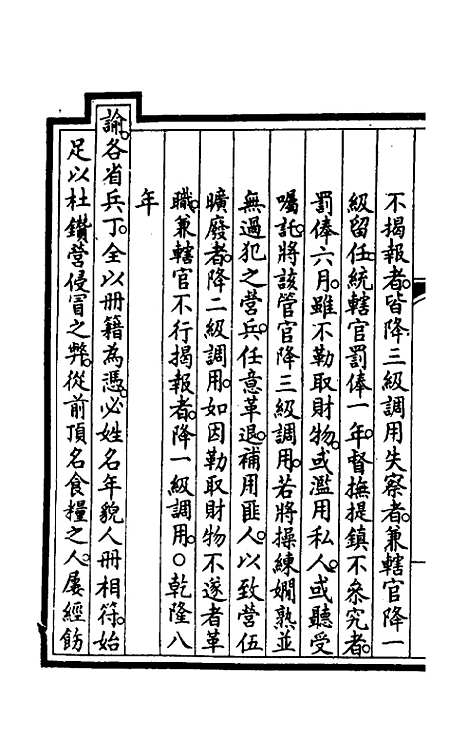 不揭報者。皆降三級調用。失察者。兼轄官降一
級留任。統轄官罰俸一年。督撫提鎮不叅究者。
罰俸六月。雖不勒取財物。或濫用私人。或聽受
囑託。將該管官降三級調用。若將操練嫻熟並
無過犯之營兵。任意革退。補用匪人。以致營伍
曠廢者。降二級調用。如因勒取財物不遂者革
職。兼轄官不行揭報者。降一級調用。○乾隆八
年
諭。各省兵丁。全以冊籍為憑。必姓名年貌人冊相符。始
足以杜鑽營侵冒之弊。從前頂名食糧之人。屢經飭